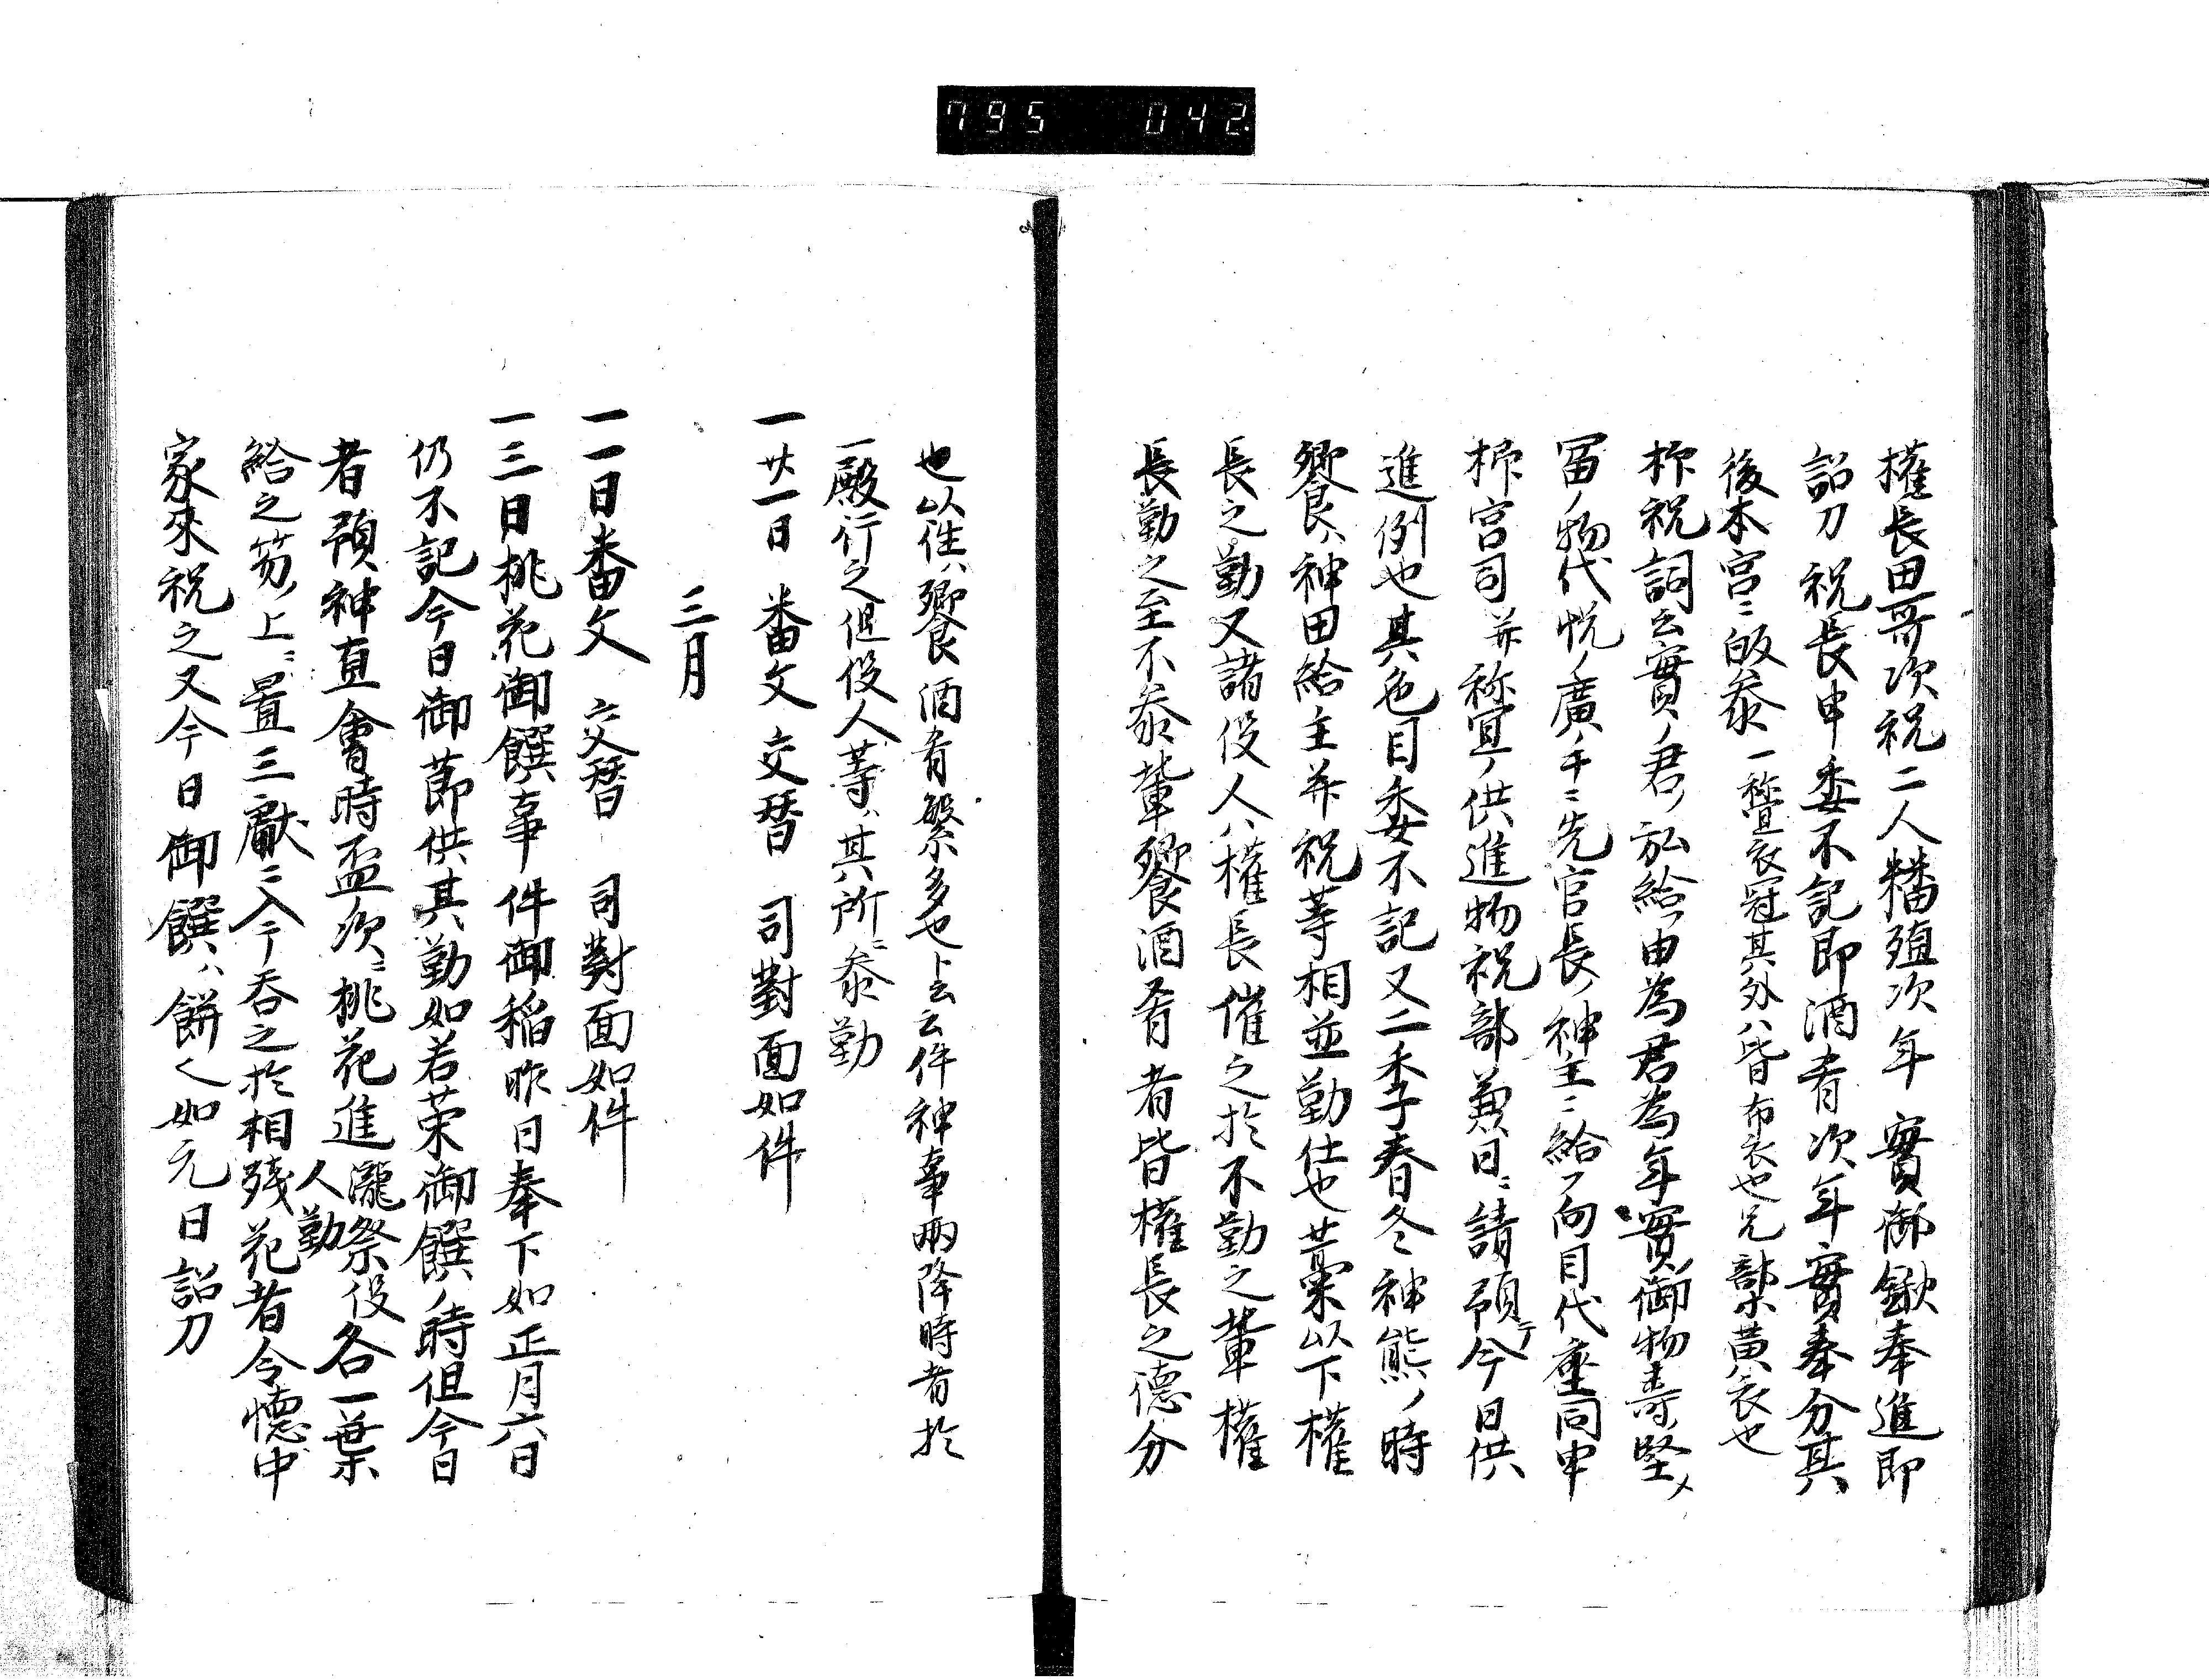 795 042
権長田哥次祝二人糒殖次年 實御鍬奉進即
詔刀 祝長申委不記即酒肴次年實奉分其
後本宮ニ皈叅 一祢宜衣冠其外ハ皆布衣也兄部ハ黄衣也
柞祝詞云實ノ君ノ弘給ノ由為君為年實御物寿堅メ
冨ノ物代悦ノ廣ノ千ニ先官長ノ神主ニ給ノ向目代座同申
柞宮司并祢冝ノ供進物祝部兼日ニ請預テ今日供
進例也其色目委不記又二季春冬神熊ノ時
饗ハ神田給主并祝等相並勤仕也其粟以下權
長之勤又諸役人ハ權長催之於不勤之輩權
長勤之至不叅輩饗酒肴者皆權長之德分
也以往ハ饗酒肴繁多也ト云云件神事雨降時者於
一殿行之但役人等ハ其所ニ叅勤
一廿一日 番文 交替 司對面如件
三月
一一日番文 交替 司對面如件
一三日桃花御饌事 件御稲昨日奉下如正月六日
仍不記今日御節供其勤如若菜御饌ノ時但今日
者預神直會時盃次ニ桃花進 瀧祭役人勤 各一葉
給之笏ノ上ニ置三獻ニ入テ吞之於相殘花者令懷中
家來祝之又今日御饌ハ餅〻如元日詔刀